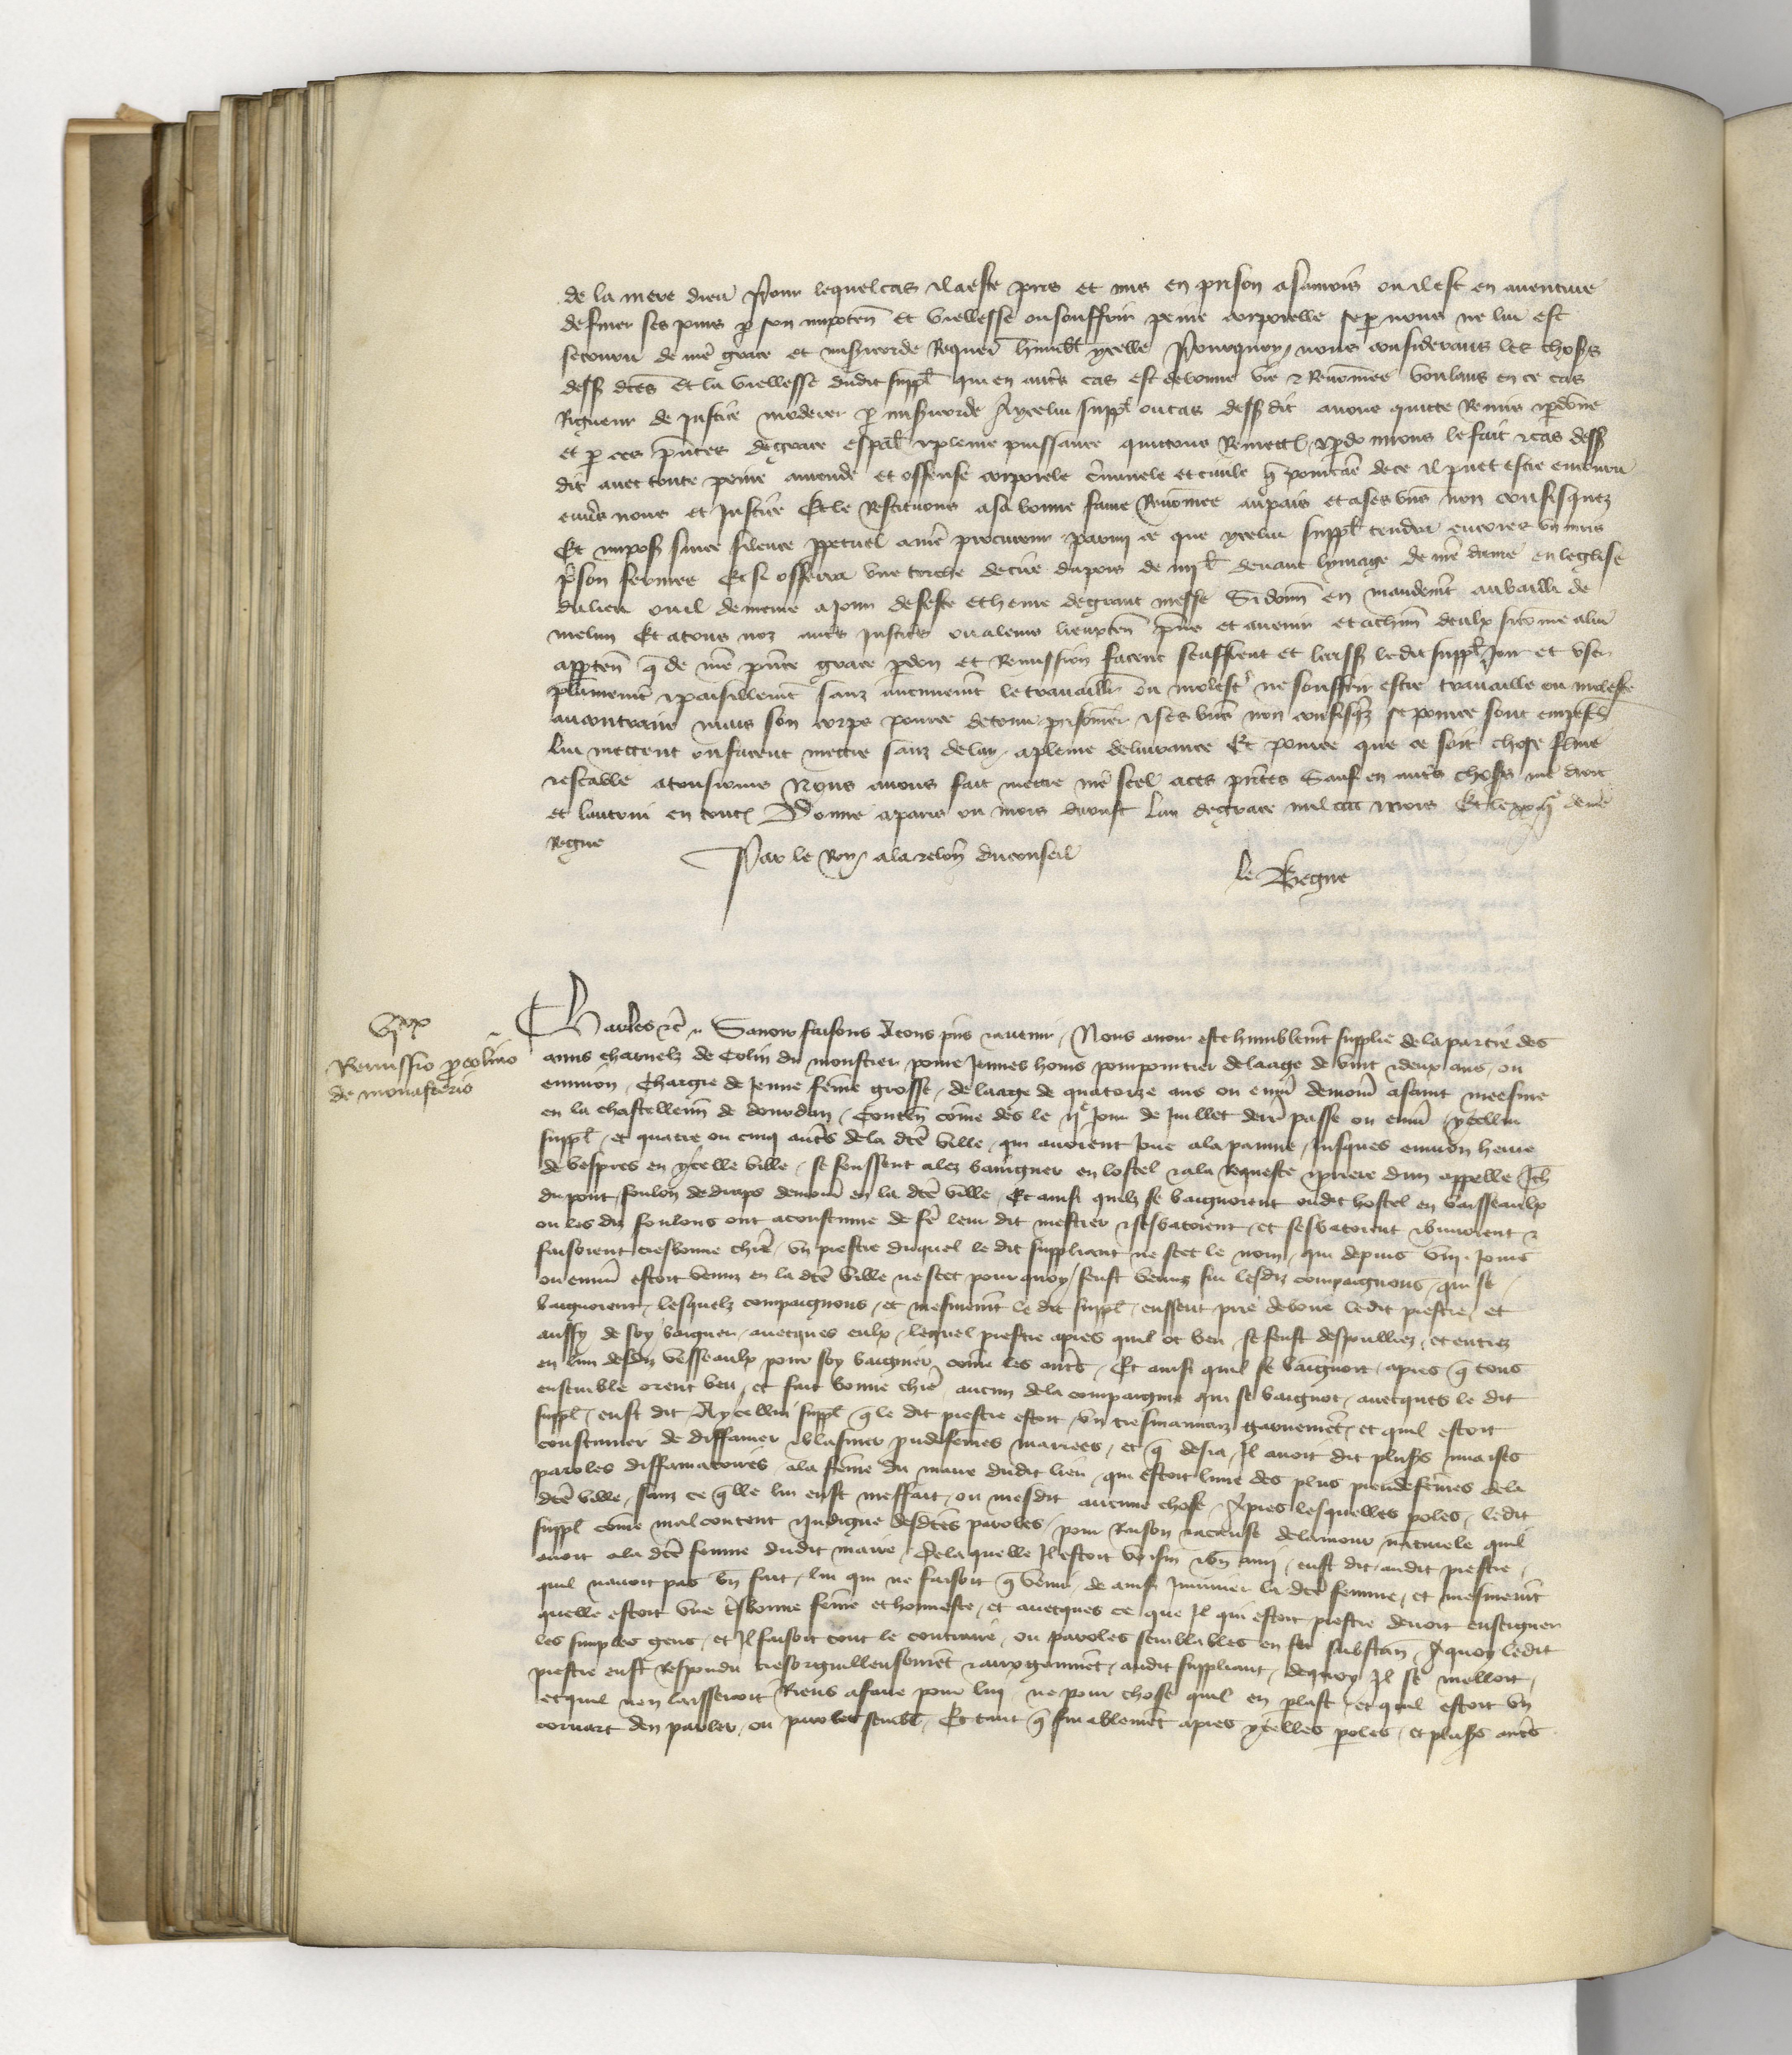 de la mere dieu Pour lequel cas il a este pris et mis en prison a Samois ou il est en aventure
de finer ses jours p son impoten et viellesse ou souffrir peine corporelle se p nous ne lui est
secouru de nre grace et misericorde Requerant humblt ycelle Pourquoy nous considerans les choses
dess dctes Et la viellesse dudit suppl qui en autres cas est de bonne vie & Renommee voulans en ce cas
Rigueur de justice moderer p misericorde A ycelui suppl ou cas dess dit avons quitte Remis & pdonne
et p ces pntes de grace espal & pleine puissance quittons Remettons & pdonnons le fait & cas dess
dit avec toute peine amende et offense corporele criminele et civile q pour cause de ce il puet estre encouru
envers nous et justice Et le Restituons a sa bonne fame Renommee au pais et a ses biens non confisquez
Et imposons sur ce silence ppetuel a nre procureur parmi ce que ycelui suppl tendra encores un mois
pson fermee Et si offerra une torche de cire du pois de iiij l devant lymage de nre dame en leglise
du lieu ou il demeure a jour de feste et heure de grant messe Si donn en mandemt au bailli de
meleun Et a tous noz autres justic ou a leurs lieuxten pns et avenir et a chun deulx si comme a lui
apptendra q de nre pnte grace pdon et Remission facent seuffrent et laissent ledit suppl Joir et user
plainemt & paisiblemt sanz aucunemt le travaillier ou molester ne souffrir estre travaille ou moleste
au contraire mais son corps pour ce detenu prisonnier & ses biens non confisqz se pour ce sont empesch
lui mettent ou facent mettre sanz delay a pleine delivrance Et pour ce que ce soit chose ferme
& estable a tousjours Nous avons fait mettre nre scel a ces pntes Sauf en autres choses nre droit
et lautrui en toutes Donne a paris ou mois daoust lan de grace mil cccc & trois Et le xxiij de nre
Regne
Par le Roy a la relon du conseil
le Begue
vjxx
Remissio p colino
de monasterio
Charles &c Savoir faisons A tous pns & avenir Nous avoir este humblemt supplie de la partie des
amis charnelz de Colin du monstier povre Jeunes homs pourpointier de laage de vint & deux ans ou
environ Chargie de Jeune feme grosse de laage de quatorze ans ou envir demour a saint meesme
en la chastellerie de dourdan Conten come des le ije Jour de Juillet derr passe ou envir ycellui
suppl et quatre ou cinq autres de la dcte ville qui avoient Joue a la paume Jusques environ heure
de vespres en ycelle ville se feussent alez baingner en lostel & a la Requeste & priere dun appelle Jeh
du pont foulon de draps demour en la dcte ville Et ainsi quilz se baignoient oudit hostel en vaisseaulx
ou les diz foulons ont acoustume de fe leur dit mestier & sesbatoient et sesbatoient & buvoient &
faisoient tresbonne chiere un prestre duquel le dit suppliant ne scet le nom qui depuis viij Jours
ou envir estoit venuz en la dcte ville ne scet pourquoy feust venuz sur lesdiz compaignons qui se
baignoient lesquelz compaignons et mesmemt le dit suppl eussent prie de boire ledit prestre et
aussy de soy baigner avecques eulx lequel prestre apres quil ot beu se feust despoulliez et entrez
en lun desdiz vesseaulx pour soy baignier come les autres Et ainsi quil se baignoit apres q tous
ensemble orent beu et fait bonne chiere aucun de la compaignie qui se baignot avecques le dit
suppl eust dit A ycellui suppl q le dit prestre estoit un tresmauvaiz garnement et quil estoit
coustumier de diffamer & blasmer prudefemes mariees et q desja Il avoit dit plus mauvaises
paroles diffamatoires a la feme du maire dudit lieu qui estoit lune des plus preudefemes de la
dcte ville sanz ce qlle lui eust meffait ou mesdit aucune chose Apres lesquelles poles ledit
suppl come mal content & indigne desdctes paroles pour Raison & a cause de lamour naturele quil
avoit a la dcte femme dudit maire de laquelle Il estoit voisin & bon ami eust dit audit prestre
quil navoit pas bn fait lui qui ne faisoit q venir de ainsi Injurier la dcte femme et mesmemt
quelle estoit une tresbonne feme et honneste et avecques ce que Il qui estoit prestre devoit enseigner
les simples gens et Il faisoit tout le contraire ou paroles semblables en substan A quoy ledit
prestre eust Respondu tresorguilleusement & arrogamment audit suppliant de quoy Il se melloit
et quil nen laisseroit Riens a faire pour lui ne pour chose quil en plast et quil estoit un
cornart den parler ou paroles sembl Et tant q finablement apres ycelles poles et plus autres